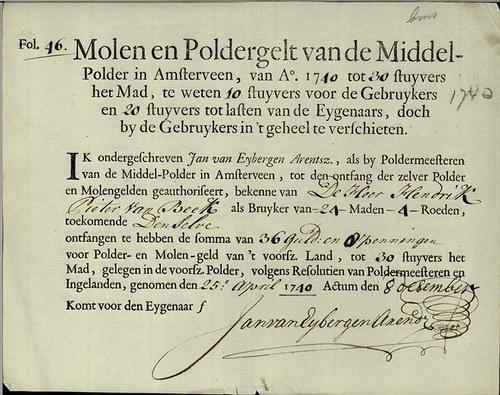 bms
Fol. 46. Molen en Poldergelt van de Middel-
Polder in Amsterveen, van Ao. 1740 tot 30 stuyvers
het Mad, te weten 10 stuyvers voor de Gebruykers
1740
en 20 stuyvers tot lasten van de Eygenaars, doch
by de Gebruykers in 't geheel te verschieten.
IK ondergeschreven Jan van Eybergen Arentsz., als by Poldermeesteren
van de Middel-Polder in Amsterveen, tot den ontfang der zelver Polder
en Molengelden geauthoriseert, bekenne van De Heer Hendrik
Pieter van Beek als Bruyker van 24 Maden 4 Roeden,
toekomende Denselve
ontfangen te hebben de somma van 36 Guld: en 8 penningen
voor Polder- en Molen-geld van 't voorsz. Land, tot 30 stuyvers het
Mad, gelegen in de voorsz. Polder, volgens Resolutien van Poldermeesteren en
Ingelanden, genomen den 25: April 1740 Actum den 8 december
Komt voor den Eygenaar ƒ
Jan van Eybergen Arendsz